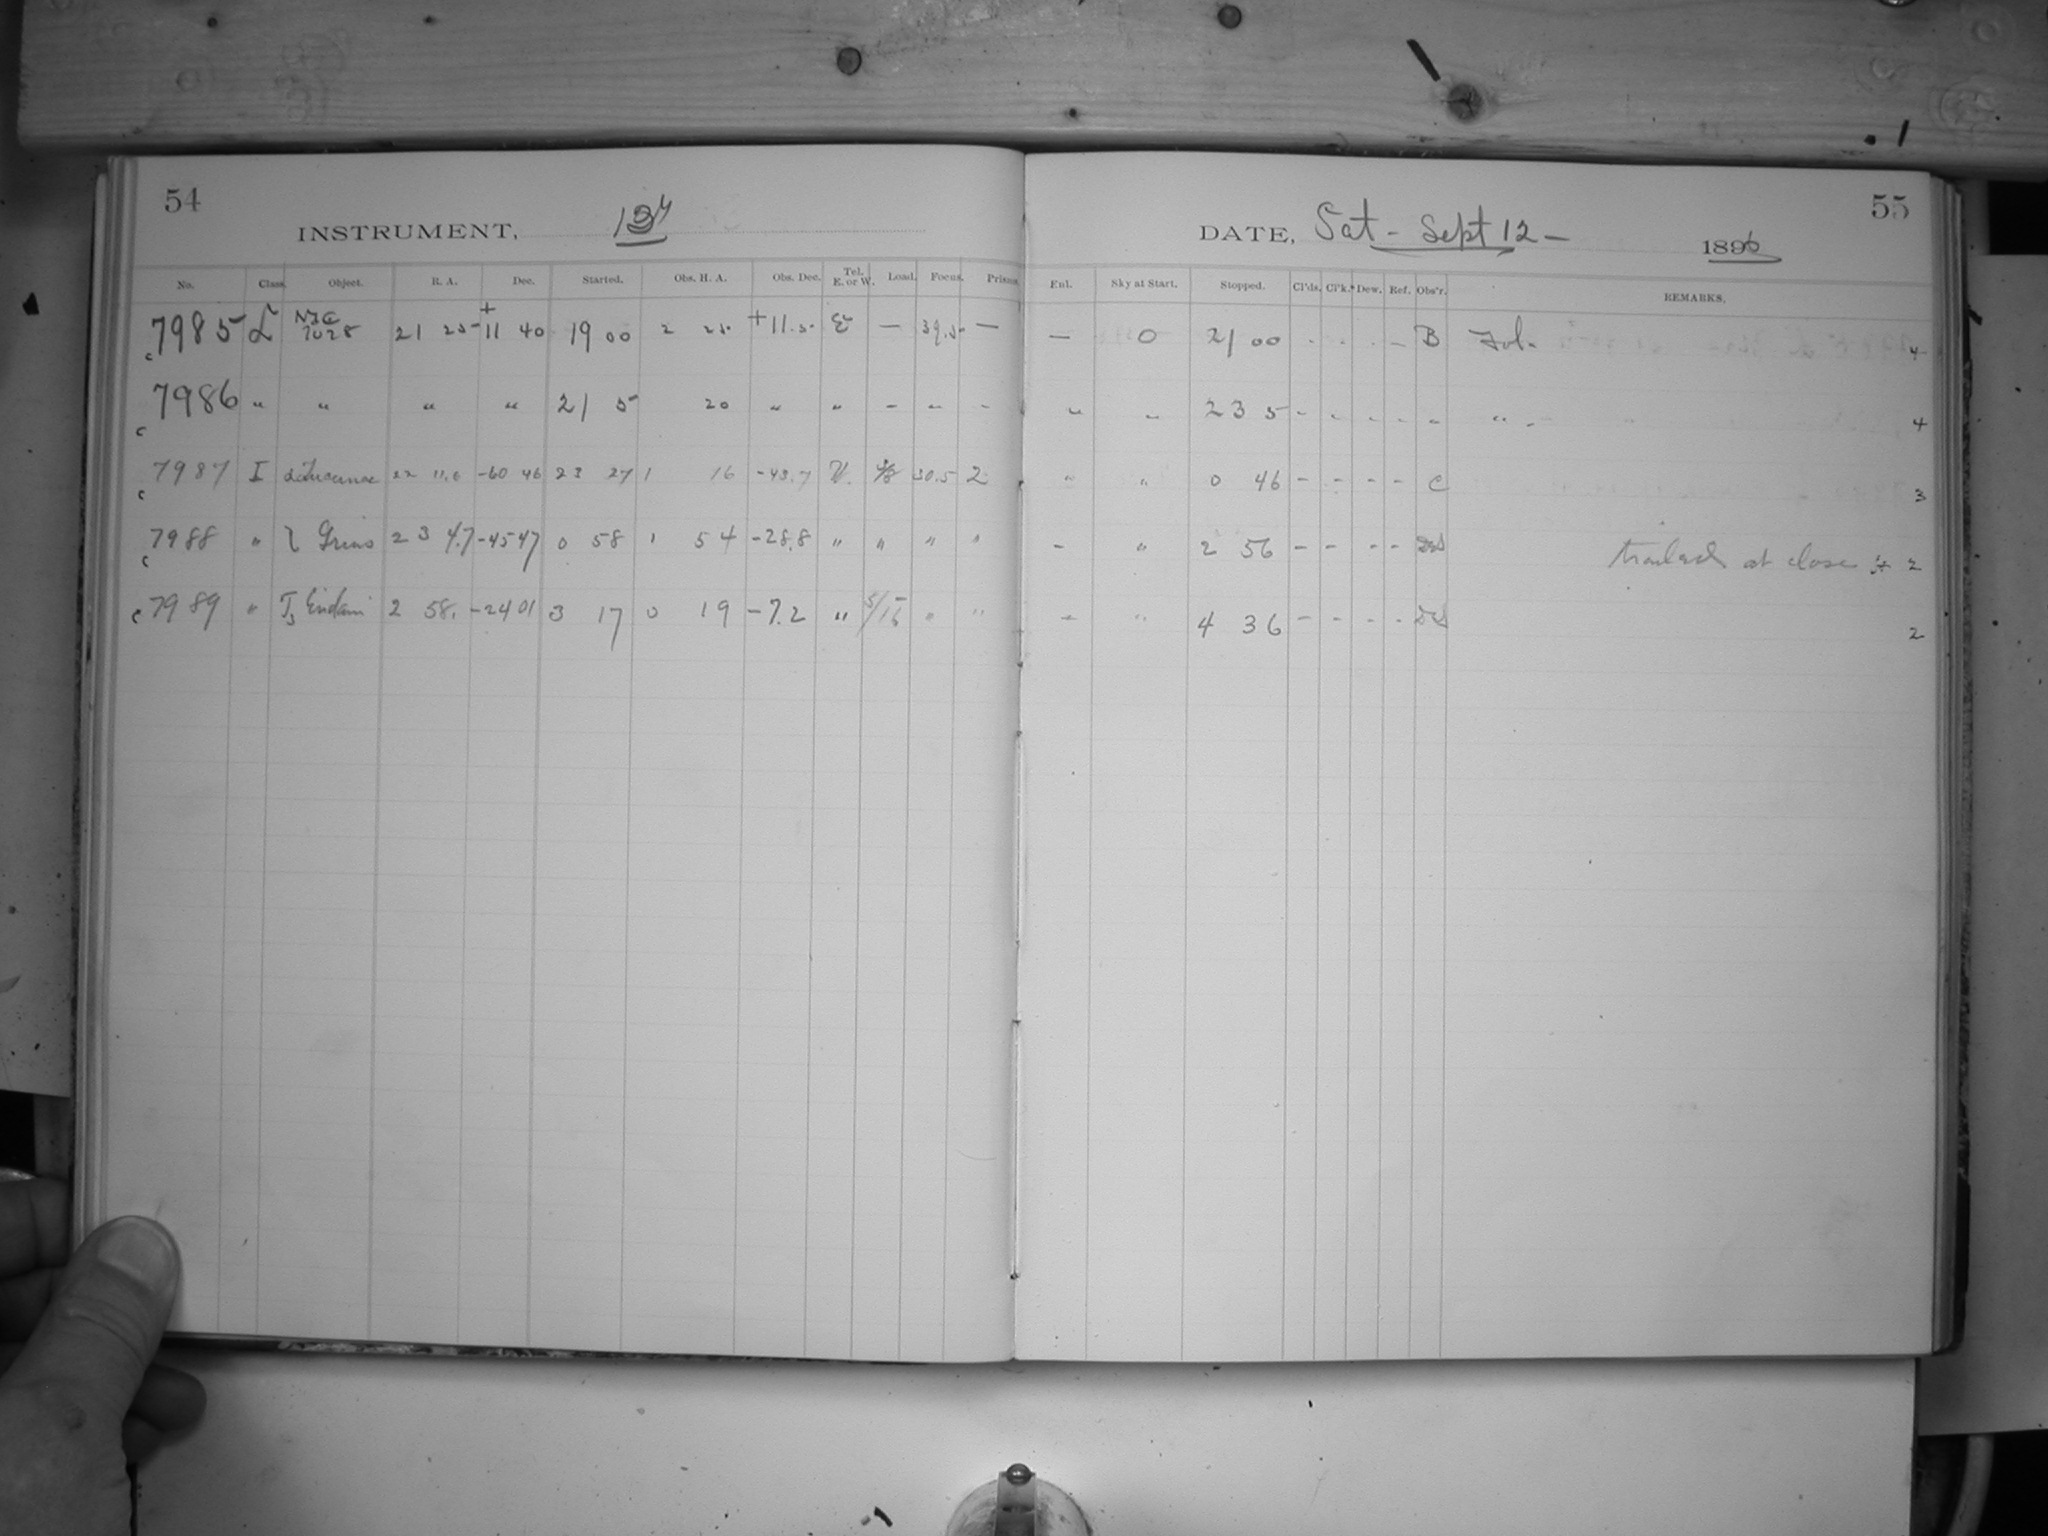 54
INSTRUMENT,
No. Class. Object. R. A. Dec. Started. Obs. H. A. Obs. Dec. Tel. E. or W. Load. Focus. Prisms.
7985 L NGC 7028 21 25 +11 40 19 00 2 25 +11.5 E — 39.5 —
7986 " " " " 21 5 20 " " - " -
c 7987 I 22 11.6 -60 46 23 27 1 16 -43.7 30.5 2
c 7988 " Grius 23 4.7 -45 47 0 58 1 54 -28.8 " " " "
c 7989 " 2 58. -24 01 3 17 0 19 -7.2 " 5/16 " "
55
DATE, Sat - Sept 12 - 1896
Enl. Sky at Start. Stopped. Cl'ds. Cl'k. Dew. Ref. Obs'r. REMARKS.
— 0 21 00 - - - - B 4
" " 23 5 - - - - " " - 4
" " 0 46 - - - - C 3
- " 2 56 - - - - trailed at close 2
- " 4 36 - - - - 2